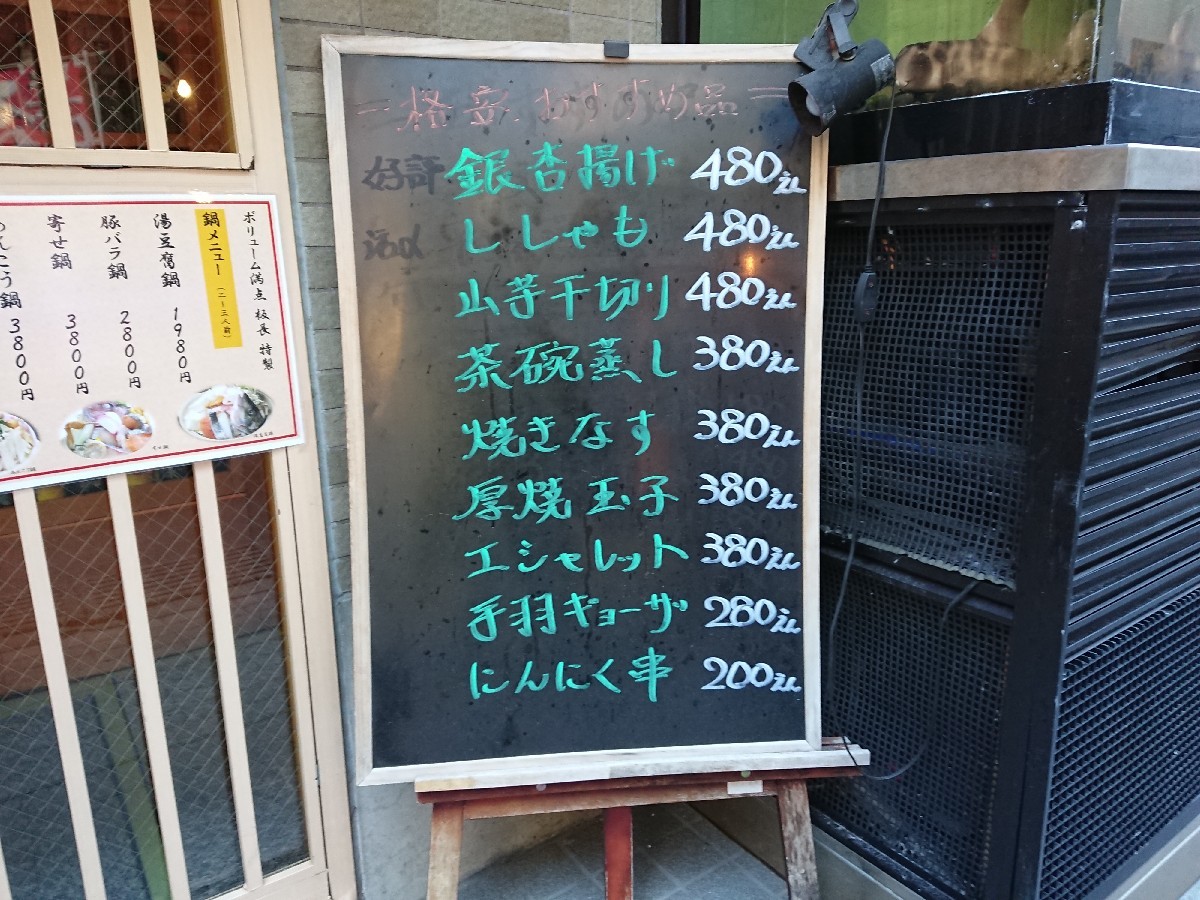 格安 おすすめ品
好評 銀杏揚げ 480えん
ししゃも 480えん
山芋千切り 480えん
茶碗蒸し 380えん
焼きなす 380えん
厚焼玉子 380えん
エシャレット 380えん
手羽ギョーザ 280えん
にんにく串 200えん
ボリューム満点 板長 特製
鍋メニュー (二〜三人前)
湯豆腐鍋 1980円
豚バラ鍋 2800円
寄せ鍋 3800円
んこう鍋 3800円